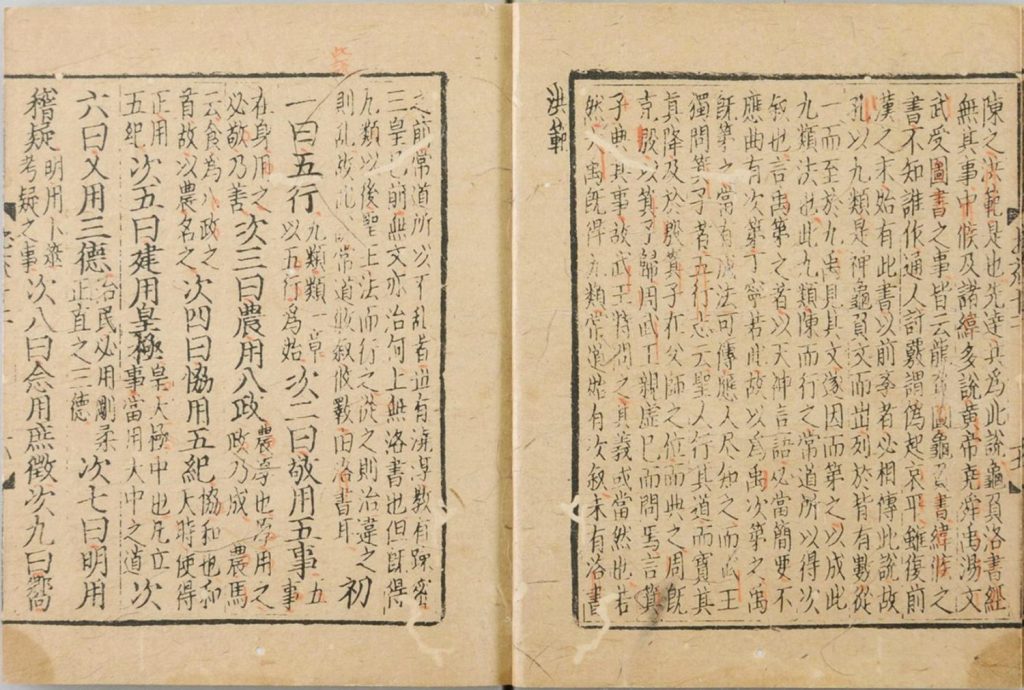 陳之洪範是也先達共為此說龜負洛書經
無其事中候及諸緯多說黃帝堯舜禹湯文
武受圖書之事皆云龍負圖龜負書緯候之
書不知誰作通人討覈謂偽起哀平雖復前
漢之末始有此書以前學者必相傳此說故
孔以九類是神龜負文而出列於背有數從
一而至於九禹見其文遂因而第之以成此
九類法也此九類陳而行之常道所以得次
叙也言禹第之者以天神言語必當簡要不
應曲有次第丁寧若此故以為禹次第之禹
既第之當有成法可傳應人尽知之而武王
獨問箕子者五行志云聖人行其道而寶其
真降及於殷箕子在父師之位而典之周既
克殷以箕子歸周武王親虛己而問焉言箕
子典其事故武王特問之其義或當然也若
然大禹既得九類常道始有次叙未有洛書
洪範
之前常道所以不乱者世有澆淳教有踈密
三皇已前無文亦治何止無洛書也但既得
九類以後聖王法而行之從之則治違之
則乱故此說常道攸叙攸斁由洛書耳初
一曰五行九類類一章以五行為始次二曰敬用五事五事
在身用之必敬乃善次三曰農用八政農厚也厚用之政乃成農馬
云食為八政之首故以農名之次四曰協用五紀協和也和大時使得
正用五紀次五曰建用皇極皇大極中也凡立事當用大中之道次
六曰乂用三德治民必用剛柔正直之三德次七曰明用
稽疑明用卜筮考疑之事次八曰念用庶徵次九曰嚮